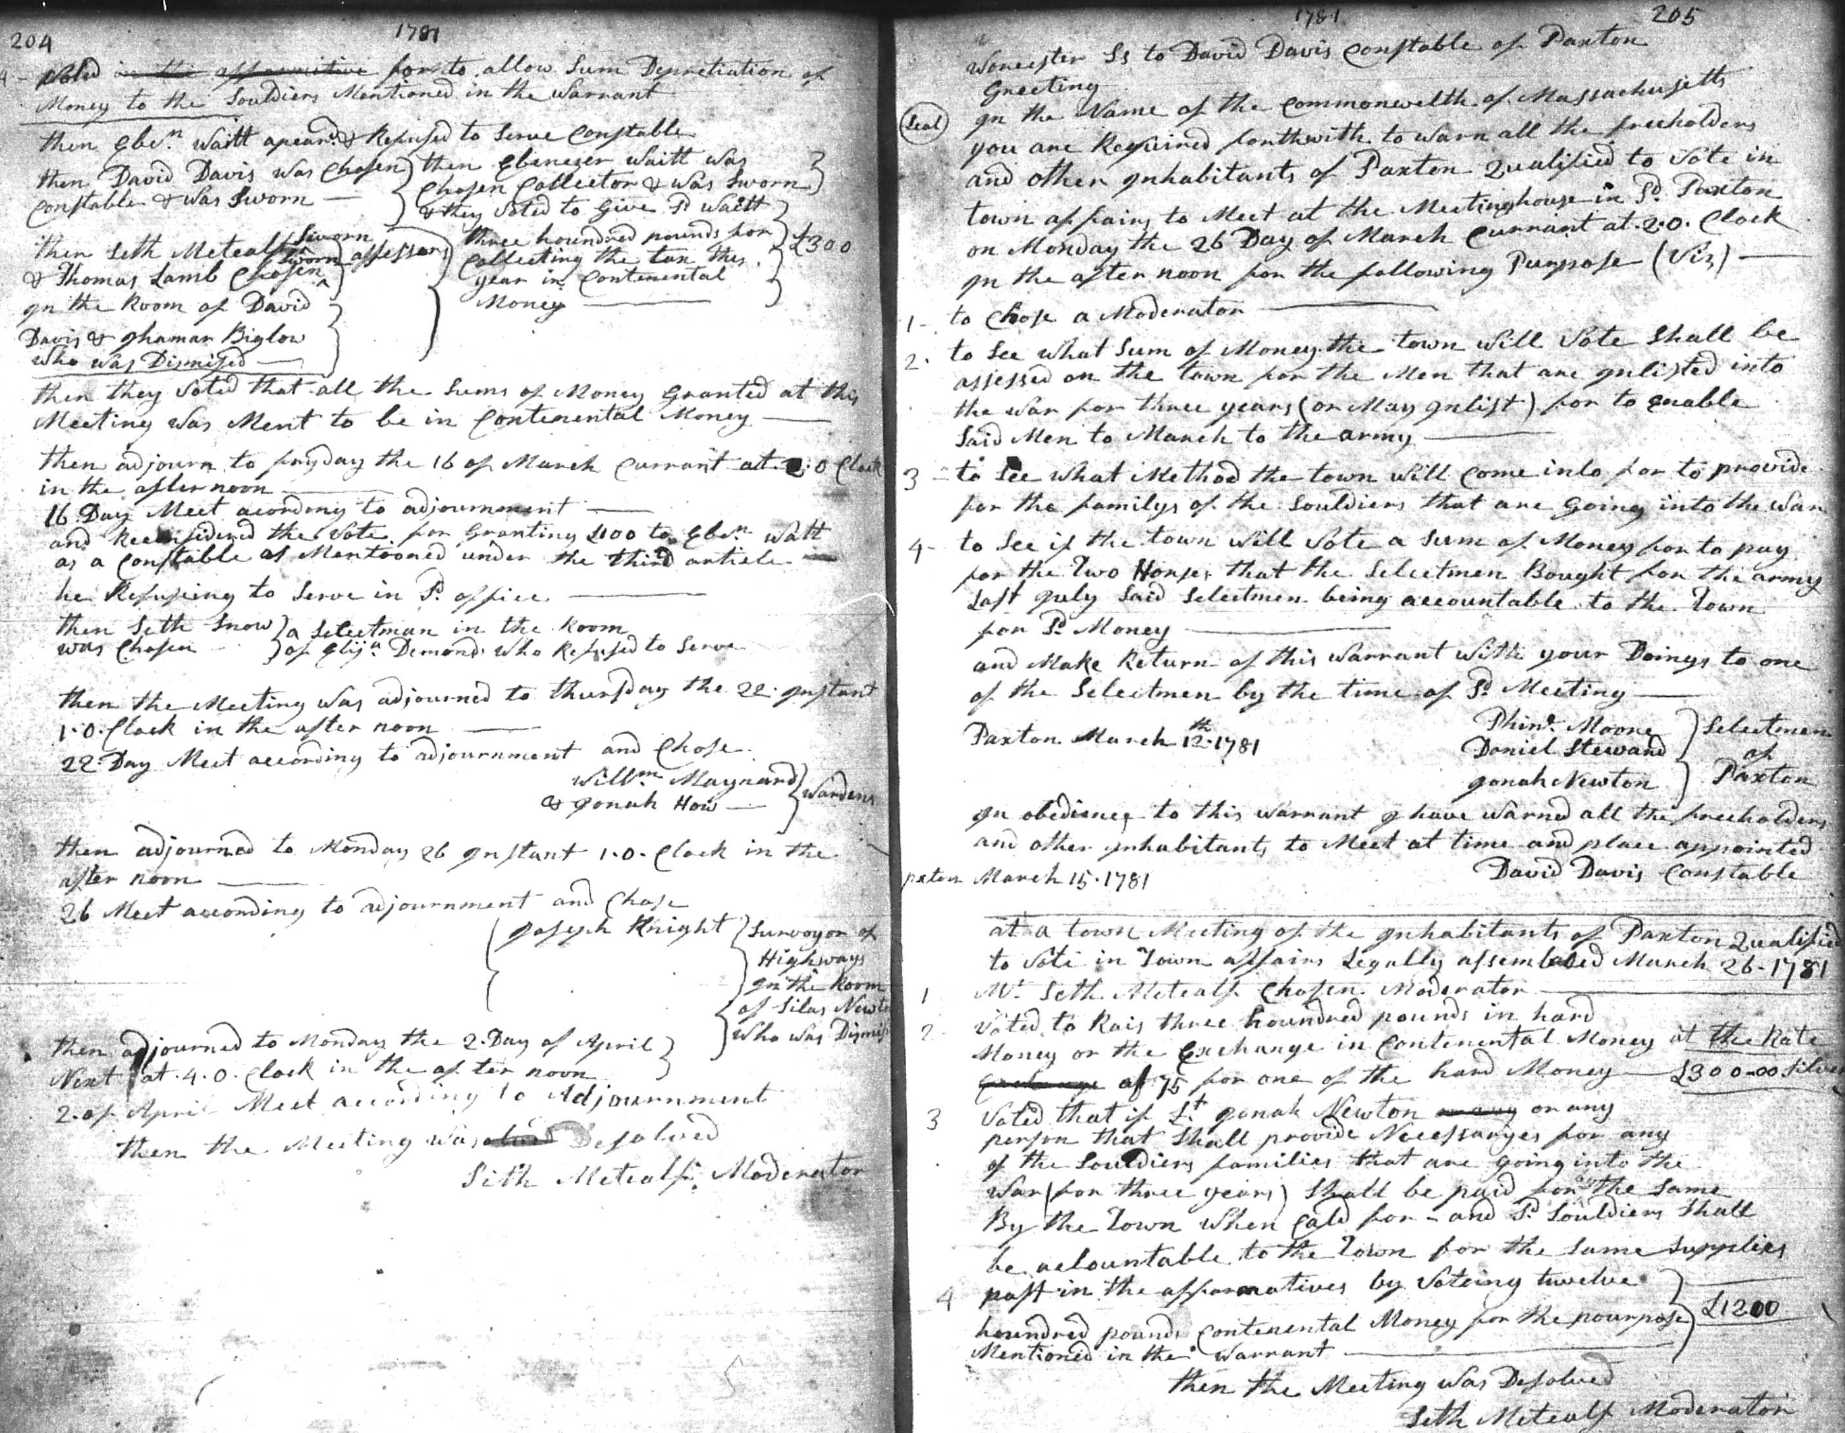 204
1781
4 - Voted in the affirmitive for to allow Sum Depretiation of
Money to the Souldiers Mentioned in the Warrant
then Ebe.n Waitt apeard & Refused to Serve Constable
then David Davis was Chosen
Constable & was Sworn —
then Ebenezer Waitt was
Chosen Collector & was Sworn
& they Voted to Give Sd Waitt
three houndred pounds for
Collecting the tax this
year in Contenental
Money
£300
then Seth Metcalf Sworn
& Thomas Lamb Chosen assessors
in the Room of David
Davis & Ithamar Biglow
who was Dismised
then they Voted that all the Sums of Money Granted at this
Meeting was Ment to be in Contenental Money
then adjourn to fryday the 16 of March Currant at 2:0 Clock
in the afternoon
16 Day Meet acording to adjournment
and Reconsidered the Vote for Granting £100 to Ebe.n Waitt
as a Constable as Mentooned under the third article
he Refuseing to Serve in Sd office
then Seth Snow
was Chosen
a Selectman in the Room
of Elij.h Demond who Refused to Serve
then the Meeting was adjourned to thursday the 22 Instant
1.0. Clock in the after noon
22 Day Meet according to adjournment and Chose
Willm Maynard
& Jonah How
Wardens
then adjourned to Monday 26 Instant 1.0. Clock in the
after noon
26 Meet according to adjournment and Chose
Joseph Knight
Surveyor of
Highways
in the Room
of Silas Newton
Who was Dismis
then adjourned to Monday the 2 Day of April
Next at .4.0. Clock in the after noon
2 of April Meet according to Adjournment
then the Meeting was Desolved
Seth Metcalf Moderator
1781
205
Worcester Ss to David Davis Constable of Paxton
Greeting
Seal
In the Name of the Commonwelth of Massachusetts
you are Required forthwith to warn all the freeholders
and other Inhabitants of Paxton Qualified to Vote in
town affairs to Meet at the Meetinghouse in Sd Paxton
on Monday the 26 Day of March Currant at .2.0. Clock
In the after noon for the following Purpose (Viz) —
1 - to Chose a Moderator
2. to See what Sum of Money the town Will Vote Shall be
assessed on the town for the Men that are Inlisted into
the war for three years (or May Inlist) for to enable
Said Men to March to the army
3 - to See what Method the town will Come into for to provide
for the familys of the Souldiers that are Going into the War
4 - to See if the town Will Vote a Sum of Money for to pay
for the Two Horses that the Selectmen Bought for the army
Last July Said Selectmen being accountable to the Town
for Sd Money
and Make Return of this Warrant With your Doings to one
of the Selectmen by the time of Sd Meeting
Paxton March 12th 1781
Phins Moore
Daniel Steward
Jonah Newton
Selectmen
of
Paxton
In obedience to this Warrant I have warned all the freeholders
and other Inhabitants to Meet at time and place appointed
paxton March 15 . 1781
David Davis Constable
at a town Meeting of the Inhabitants of Paxton Qualified
to Vote in Town affairs Legally assembled March 26 - 1781
1 Mr Seth Metcalf Chosen Moderator
2 - Voted to Rais three houndred pounds in hard
Money or the Exchange in Contenental Money at the Rate
Exchange of 75 for one of the hard Money — £300-00 Silver
3 Voted that if Lt Jonah Newton or any
person that Shall provide Necessaryes for any
of the Souldiers families that are going into the
War (for three years) Shall be paid for the Same
By the Town When Cald for - and Sd Souldiers Shall
be accountable to the Town for the Same Supplies
4 past in the affarmatives by Voteing twelve
houndred pounds Contenental Money for the pourpose
Mentioned in the Warrant
£1200
then the Meeting was Desolved
Seth Metcalf Moderator